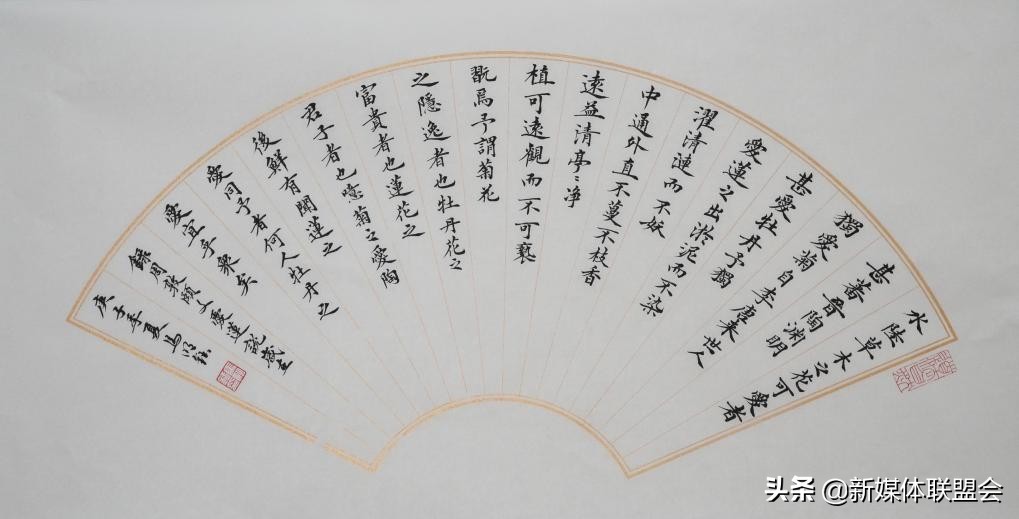 水陸草木之花可愛者
甚蕃晉陶渊明
獨愛菊自李唐来世人
甚愛牡丹予獨
愛蓮之出淤泥而不染
濯清漣而不妖
中通外直不蔓不枝香
遠益清亭〻净
植可遠觀而不可褻
翫焉予謂菊花
之隱逸者也牡丹花之
富貴者也蓮花之
君子者也噫菊之愛陶
後鮮有聞蓮之
愛同予者何人牡丹之
愛宜乎衆矣
錄周敦頤文愛蓮說歲在
庚子季夏馬
头条 @新媒体联盟会